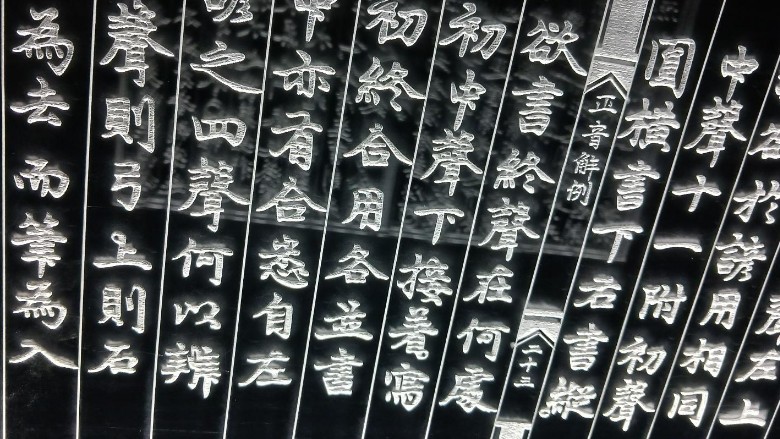 左上
於諺用相同
中聲十一附初聲
圓橫書下右書縱
正音解例
二十三
欲書終聲在何處
初中聲下接着寫
初終合用各並書
中亦有合悉自左
諺之四聲何以辨
聲則弓上則石
為去而筆為入